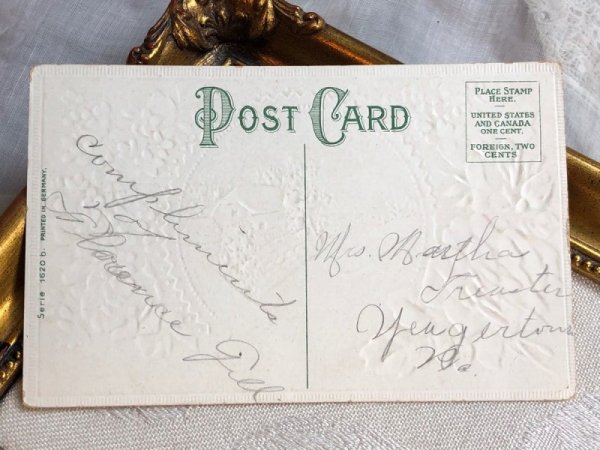 POST CARD
PLACE STAMP
HERE.
UNITED STATES
AND CANADA
ONE CENT.
FOREIGN, TWO
CENTS
Serie 1620 b. PRINTED IN GERMANY.
Compliments
of
Florence Gill
Mrs. Martha
Treaster
Yeagertown
Pa.